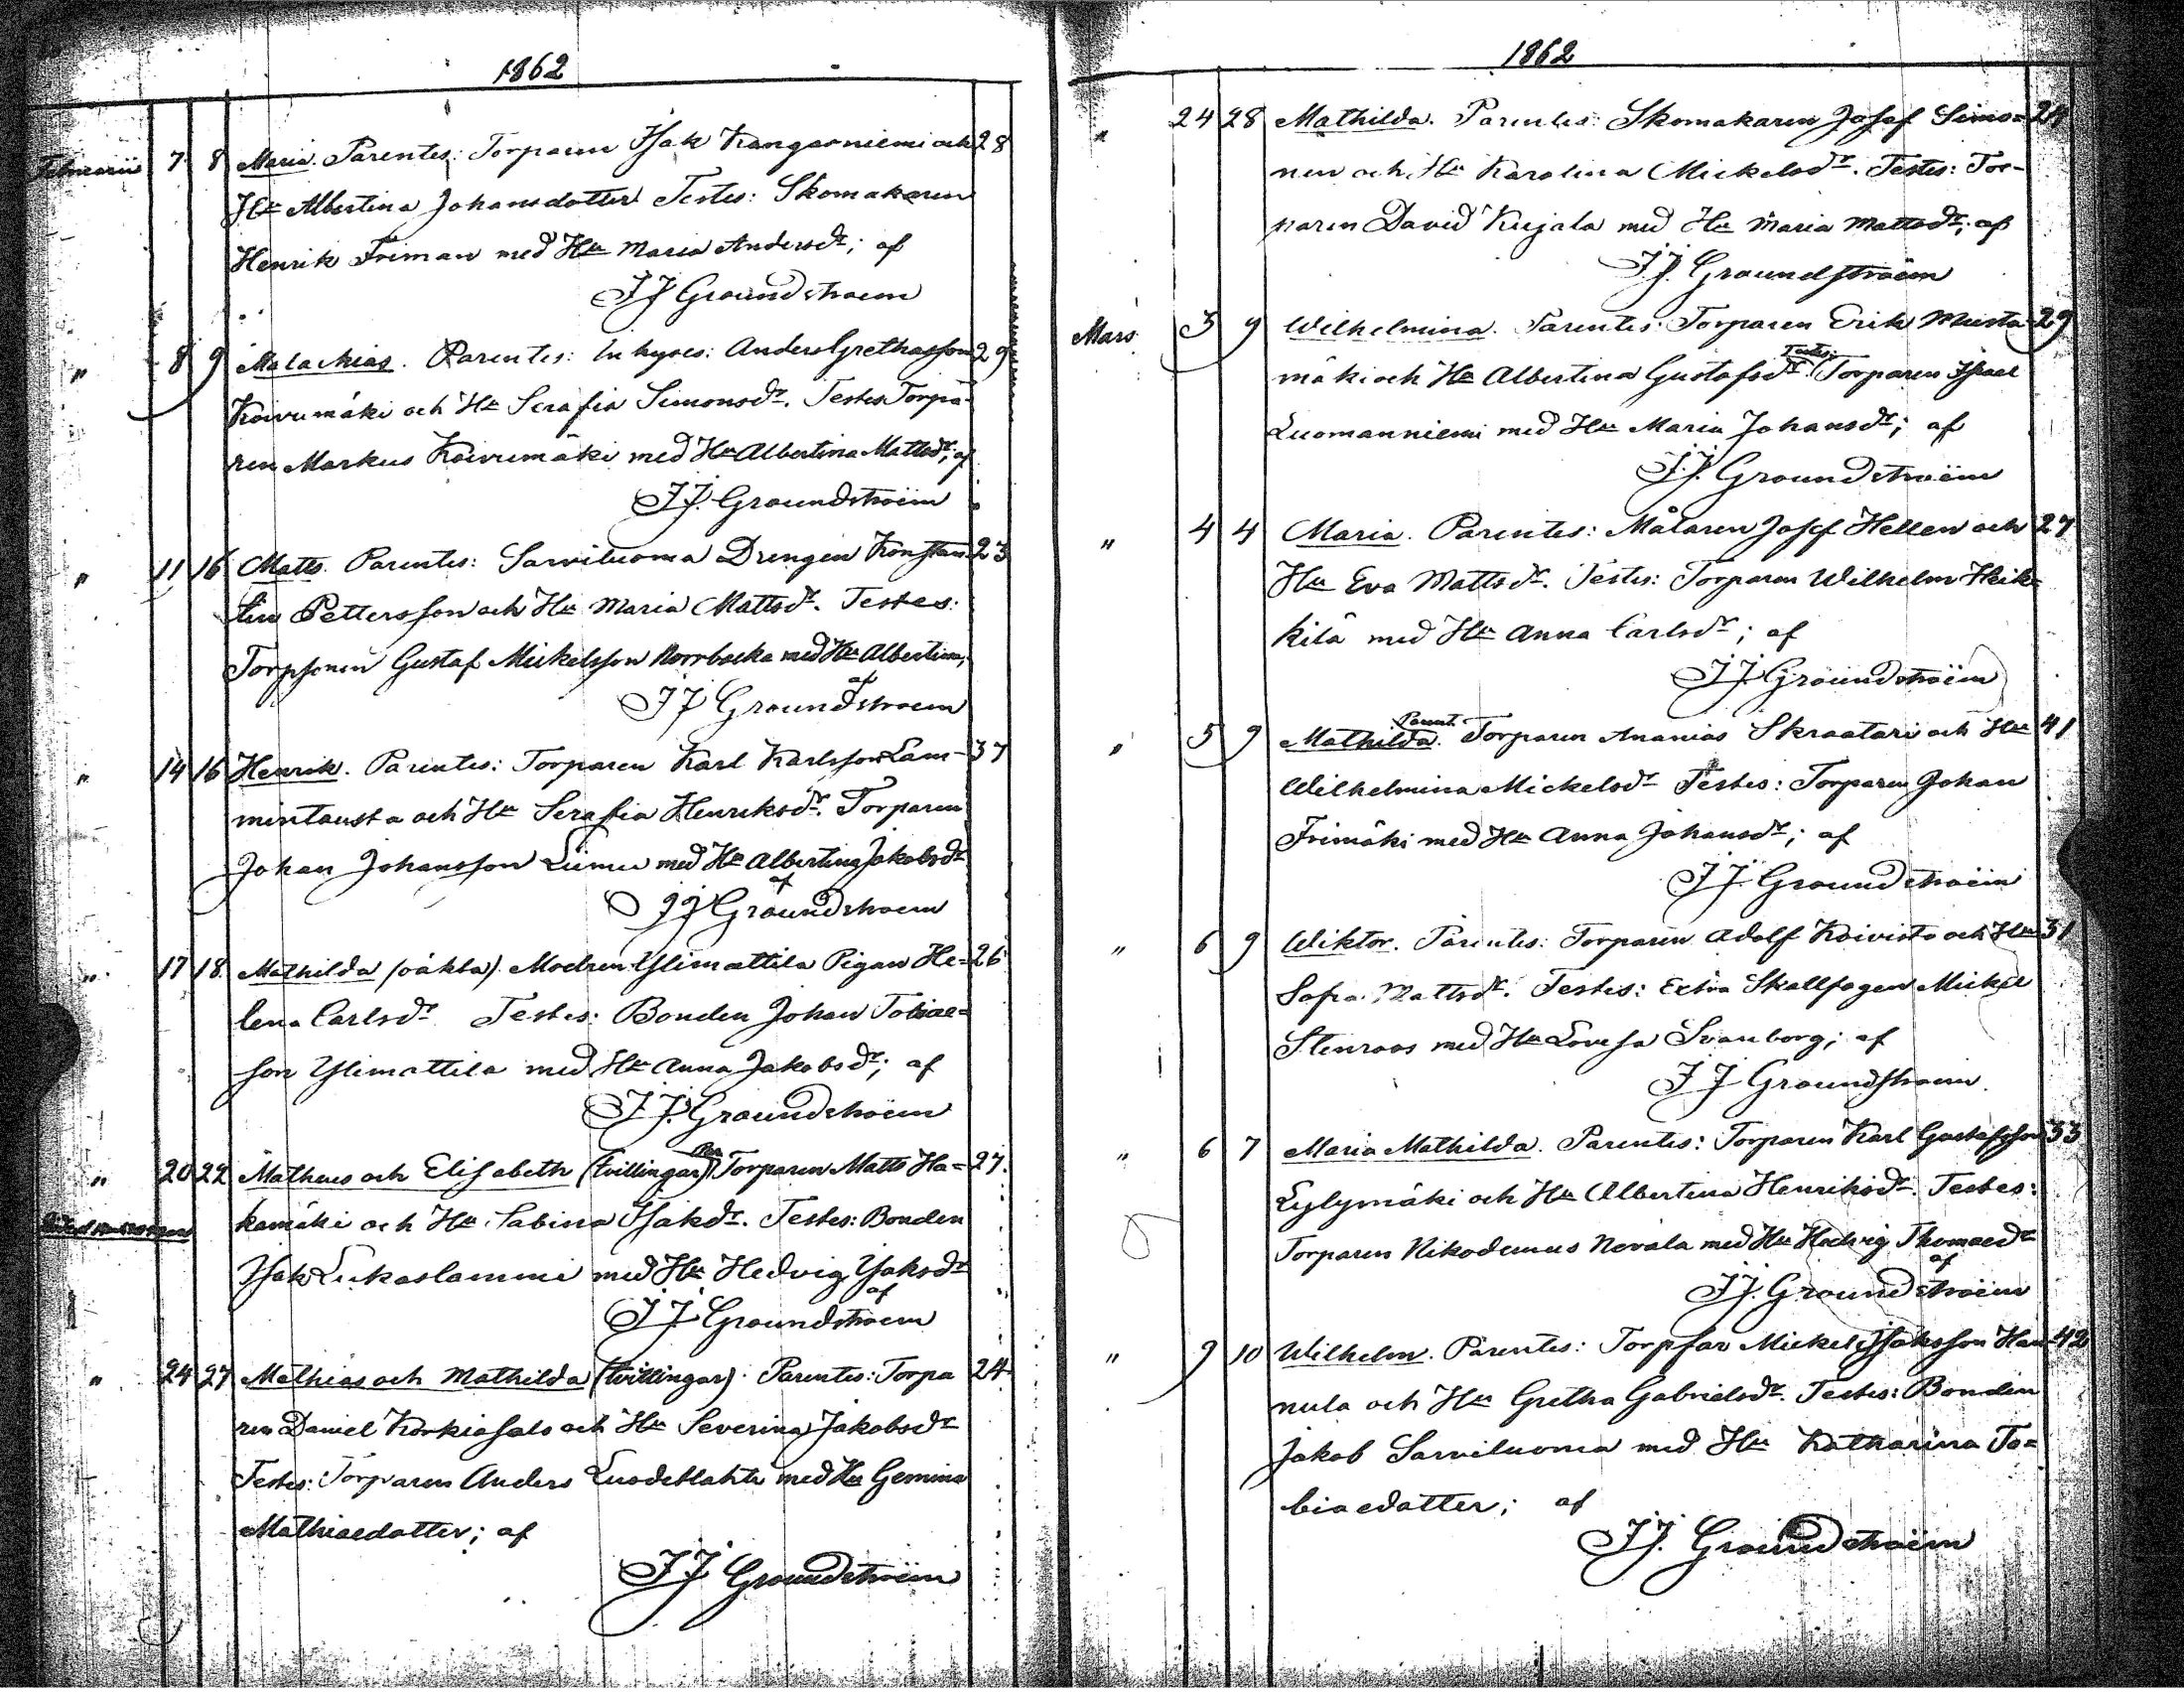 1862
Februarii 7 8 Maria. Parentes: Torparen Isak Kangasniemi och 28
Hu Albertina Johansdotter Testes: Skomakaren
Henrik Friman med Hu Maria Andersdr; af
JJ Groundstroem
" 8 9 Malachias. Parentes: Inhyses: Anders Grethasson 29
Koivumäki och Hu Serafia Simonsdr. Testes Torpa-
ren Markus Koivumäki med Hu Albertina Mattsdr; af
J.J. Groundstroëm
" 11 16 Matts. Parentes: Sarviluoma Drengen Konstan- 23
tin Pettersson och Hu Maria Mattsdr. Testes:
Torpsonen Gustaf Mickelsson Norrbacka med Hu Albertina,
af
JJ Groundstroem
" 14 16 Henrik. Parentes: Torparen Karl Karlsson Lam- 37
mintausta och Hu Serafia Henriksdr. Torparen
Johan Johansson Luimu med Hu Albertina Jakobsdr
af
JJ Groundstroem
" 17 18 Mathilda (oäkta). Modren Ylimattila Pigan He= 26
lena Carlsdr Testes: Bonden Johan Tobiae=
son Ylimattila med Hu Anna Jakobsdr; af
J.J. Groundstroëm
" 20 22 Matheus och Elisabeth (tvillingar) Par Torparen Matts Ha= 27.
kamäki och Hu Sabina Isaksdr. Testes: Bonden
Isak Lukaslammi med Hu Hedvig Isaksdr
af
JJ Groundstroem
" 24 27 Mathias och Mathilda (tvillingar). Parentes: Torpa 24
ren Daniel Korkiasalo och Hu Severina Jakobsdr
Testes: Torparen Anders Luodeslahti med Hu Gemina
Mathiaedotter; af
JJ Groundstroëm
1862
" 24 28 Mathilda. Parentes: Skomakaren Josef Simo=
nen och Hu Karolina Mickelsdr. Testes: Tor-
paren David Kujala med Hu Maria Mattsdr; af
J.J. Groundstroëm
Mars 3 9 Wilhelmina. Parentes: Torparen Erik Musta- 29
mäki och Hu Albertina Gustafsdr. Testes: Torparen Israel
Luomanniemi med Hu Maria Johansdr; af
J.J. Groundstroëm
" 4 4 Maria. Parentes: Målaren Josef Hellen och 27
Hu Eva Mattsdr. Testes: Torparen Wilhelm Heik-
kilä med Hu Anna Carlsdr; af
JJ Groundstroëm
" 5 9 Mathilda. Parent. Torparen Ananias Skraatari och Hu 41
Wilhelmina Mickelsdr Testes: Torparen Johan
Frimäki med Hu Anna Johansdr; af
JJ Groundstroëm
" 6 9 Wiktor. Parentes: Torparen Adolf Koivisto och Hu 31
Sofia Mattsdr. Testes: Extra Skallfogen Mickel
Stenroos med Hu Lovisa Svanborg; af
JJ Groundstroem
" 6 7 Maria Mathilda. Parentes: Torparen Karl Gustafsson 33
Lylymäki och Hu Albertina Henriksdr. Testes:
Torparen Nikodemus Nevala med Hu Hedvig Thomaedr
af
JJ. Groundstroëm
" 9 10 Wilhelm. Parentes: Torpfar Mickel Isaksson Han- 42
nula och Hu Gretha Gabrielsdr. Testes: Bonden
Jakob Sarviluoma med Hu Katharina To=
biaedotter; af
JJ. Groundstroëm